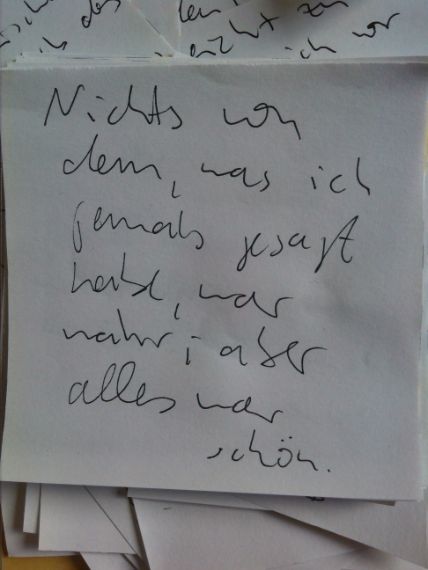 ich war
Nichts von
dem, was ich
jemals gesagt
habe, war
wahr; aber
alles war
schön.